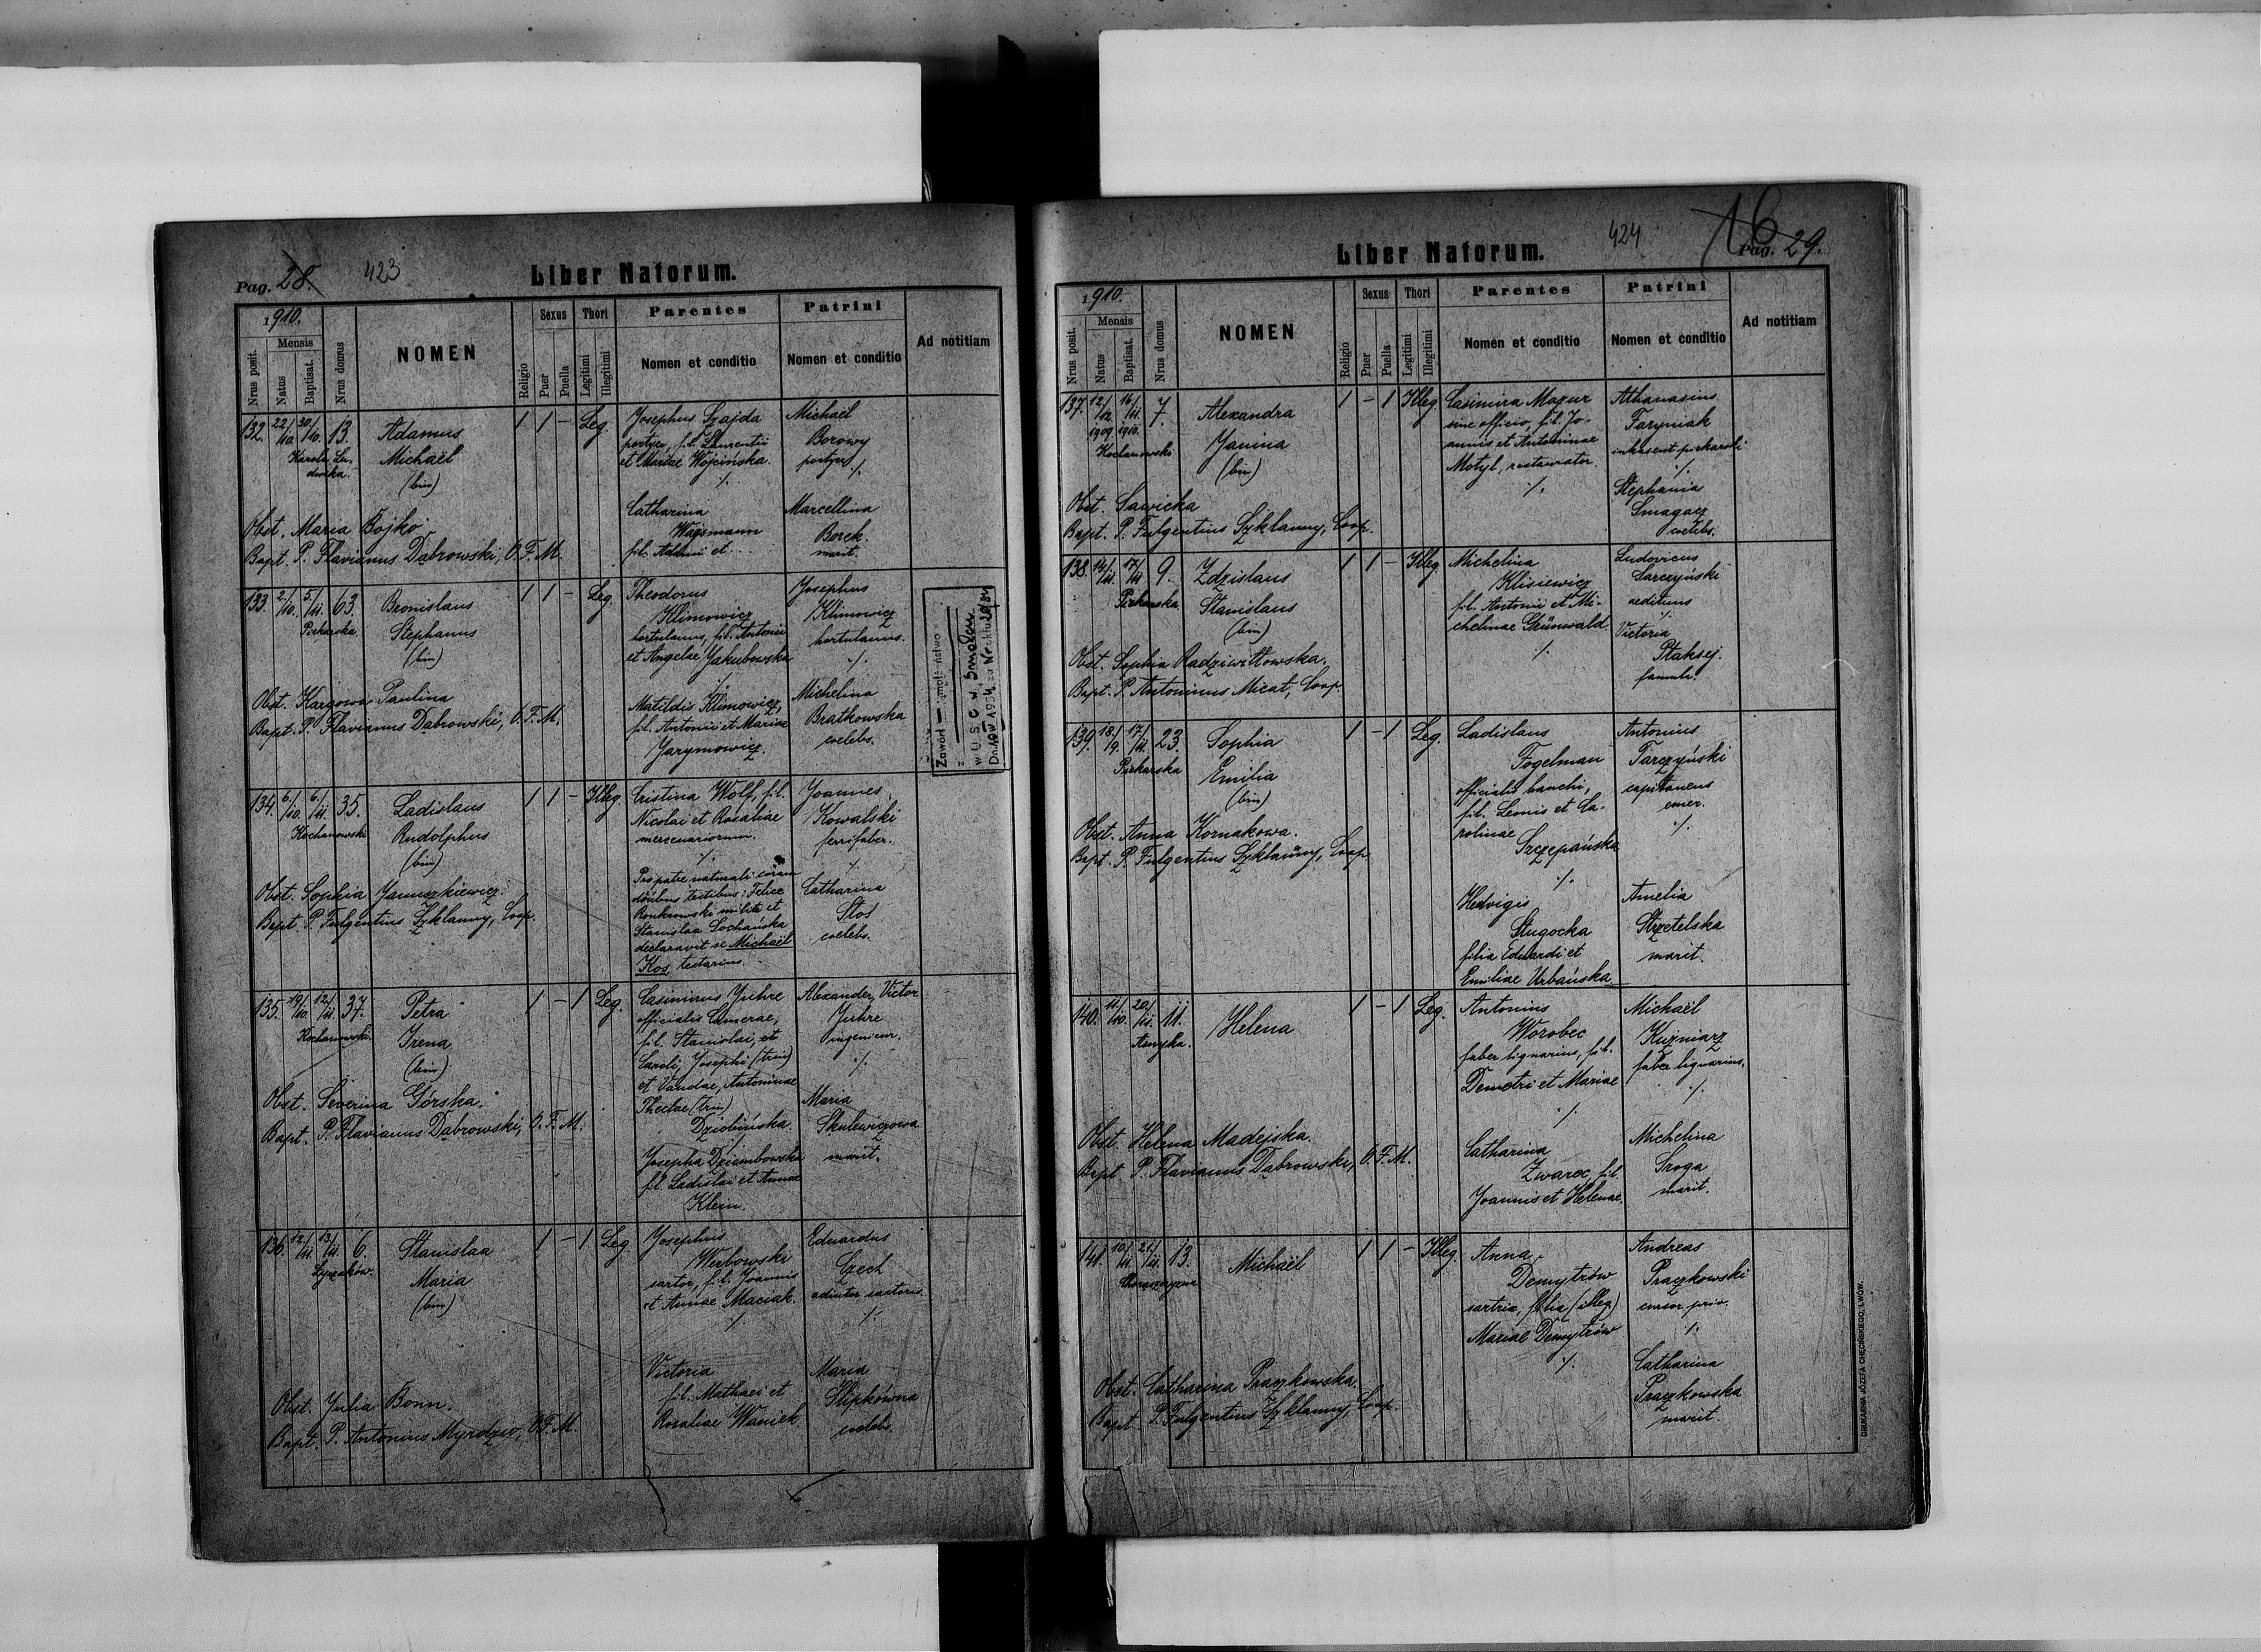 Pag. 28. 423 Liber Natorum.
1910.
Nrus posit. Mensis Natus Baptisat. Nrus domus NOMEN Religio Sexus Puer Puella Thori Legitimi Illegitimi Parentes Nomen et conditio Patrini Nomen et conditio Ad notitiam
132. 22/10. 30/10. 13.
Karola Lu-
dwika.
Adamus
Michaël
(bin)
1 1 – Leg.
Josephus Szajda
portyer, fil. Laurentii
et Mariae Wójcińska.
./.
Catharina
Wagsmann
fil. Adami et ...
Michaël
Borowy
portyer
./.
Marcellina
Borek.
marit.
Obst. Maria Bojko
Bapt. P. Flavianus Dąbrowski, O.F.M.
133. 2/10. 5/11. 63.
Piekarska
Bronislaus
Stephanus
(bin)
1 1 – Leg.
Theodorus
Klimowicz
hortulanus, fil. Antonii
et Angelae Jakubowska
./.
Matildis Klimowicz,
fil. Antonii et Mariae
Jarymowicz.
Josephus
Klimowicz
hortulanus.
./.
Michelina
Bratkowska
coelebs.
Obst. Kargowa Paulina
Bapt. P. Flavianus Dąbrowski, O.F.M.
Zawarł małżeństwo
z
w U.S.C. w
134. 6/10. 6/11. 35.
Kochanowski
Ladislaus
Rudolphus
(bin)
1 1 – Illeg.
Cristina Wolf, fil.
Nicolai et Rosaliae
mercenariorum.
./.
Pro patre naturali coram
dobus testibus: Felice
Ronkrowski milite et
Stanislaa Lochańska
declaravit se Michaël
Kos, testarius.
Joannes
Kowalski
ferrifaber.
./.
Catharina
Stos
coelebs.
Obst. Sophia Januszkiewicz.
Bapt. P. Fulgentius Szklanny, Coop.
135. 19/10. 12/11. 37.
Kochanowski.
Petra
Irena
(bin)
1 – 1 Leg.
Casimirus Juhre
officialis Camerae,
fil. Stanislai, et
Caroli, Josephi (trin)
et Vandae, Antoninae
Theclae (trin)
Dziobińska.
./.
Josepha Dziembowska
fil. Ladislai et Annae
Klein.
Alexander, Victor
Juhre
ingenieur.
./.
Maria
Skulewiczowa
marit.
Obst. Severina Górska.
Bapt. P. Flavianus Dąbrowski, O.F.M.
136. 12/11. 13/11. 6.
Łyczaków.
Stanislaa
Maria
(bin)
1 – 1 Leg.
Josephus
Werbowski
sartor, fil. Joannis
et Annae Maciak.
./.
Victoria
fil. Mathaei et
Rosaliae Waniek
Eduardus
Czech
adiutor sartoris.
./.
Maria
Slipkówna
coelebs.
Obst. Julia Bonn.
Bapt. P. Antonius Myrdzio, O.F.M.
Liber Natorum. 424 16 Pag. 29.
1910.
Nrus posit. Mensis Natus Baptisat. Nrus domus NOMEN Religio Sexus Puer Puella Thori Legitimi Illegitimi Parentes Nomen et conditio Patrini Nomen et conditio Ad notitiam
137. 12/12 1909. 16/11. 1910. 7.
Kochanowski
Alexandra
Janina
(bin)
1 – 1 Illeg.
Casimira Mazur
sine officio, fil. Jo-
annis et Antoninae
Motyl, restaurator.
./.
Athanasius
Faryniak
inkasent piekarski
./.
Stephania
Smagacz
coelebs.
Obst. Sawicka
Bapt. P. Fulgentius Szklanny, Coop.
138. 14/11. 17/11 9.
Piekarska.
Zdzislaus
Stanislaus
(bin)
1 1 – Illeg.
Michelina
Klisiewicz
fil. Antonii et Mi-
chelinae Grünwald.
./.
Ludovicus
Larczyński
aedituus
./.
Victoria
Ptaksej.
famula.
Obst. Sophia Radziwiłłowska.
Bapt. P. Antonius Micat, Coop.
139. 18/9. 17/11. 23.
Piekarska
Sophia
Emilia
(bin)
1 – 1 Leg.
Ladislaus
Fogelman
officialis banchi,
fil. Leonis et Ca-
rolinae
Szczepańska
./.
Hedvigis
Długocka
filia Eduardi et
Emiliae Urbańska
Antonius
Tarczyński
capitaneus
emer.
./.
Amelia
Strzetelska
marit.
Obst. Anna Kornakowa.
Bapt. P. Fulgentius Szklanny, Coop
140. 11/10. 20/11. 11.
Helena
1 – 1 Leg.
Antonius
Worobec
faber lignarius, fil.
Demetri et Mariae
./.
Catharina
Zwarec, fil.
Joannis et Helenae.
Michaël
Kuzniarz
faber lignarius,
./.
Michelina
Sroga
marit.
Obst. Helena Madejska.
Bapt. P. Flavianus Dąbrowski, O.F.M.
141. 10/11. 21/11. 13.
Michaël
1 1 – Illeg.
Anna
Demytrów
sartrix, filia (illeg)
Mariae Demytrów
./.
Andreas
Praczkowski
cursor priv.
./.
Catharina
Praczkowska
marit.
Obst. Catharina Praczkowska.
Bapt. P. Fulgentius Szklanny, Coop.
DRUKARNIA JÓZEFA CHĘCIŃSKIEGO, LWÓW.